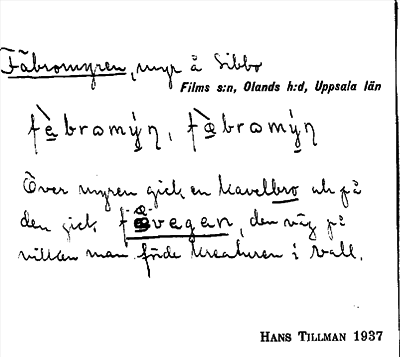 Fäbromyren, myr å Sibbo
Films s:n, Olands h:d, Uppsala län
fe̖bromýn, fæ̖bromýn
Över myren gick en kavelbro och på
den gick fævegan, den väg på
vilken man förde kreaturen i vall.
HANS TILLMAN 1937